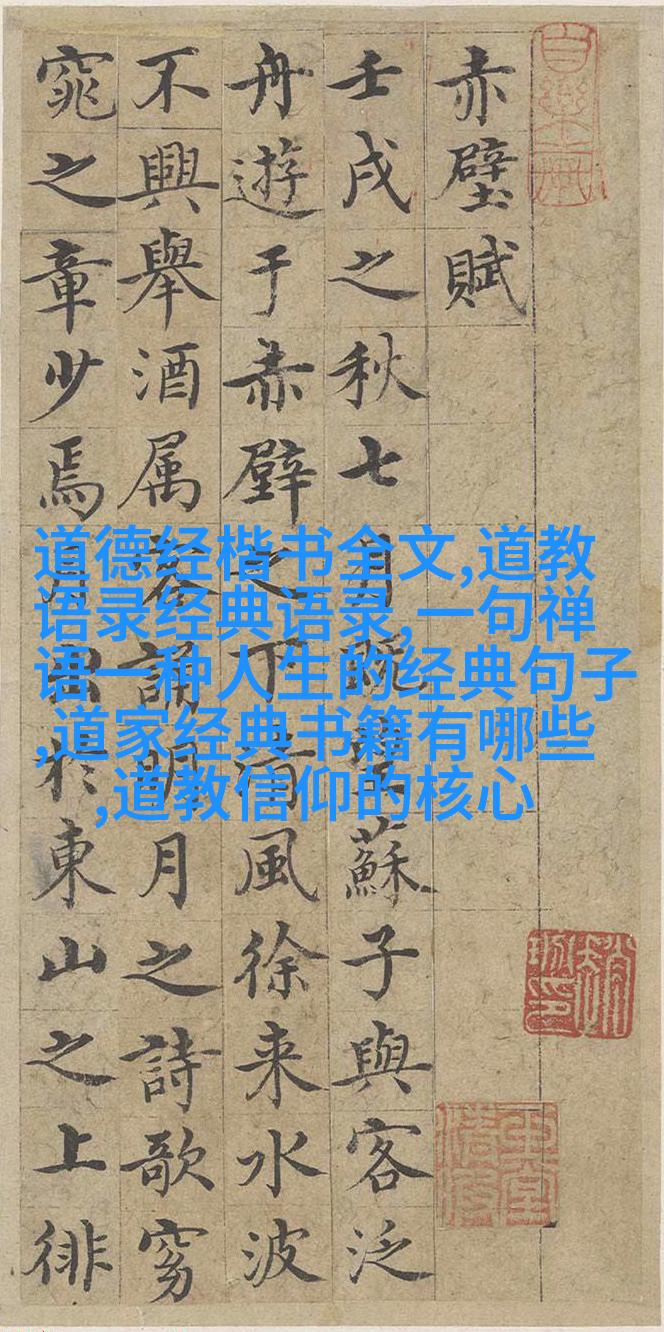 赤壁賦
壬戌之秋七月既望蘇子與客泛
舟遊于赤壁之下清風徐来水波
不興舉酒属客誦明月之詩歌窈
窕之章少焉月出於東山之上徘
道德经楷书全文,道教
语录经典语录,一句禅
语一种人生的经典句子
,道家经典书籍有哪些
,道教信仰的核心